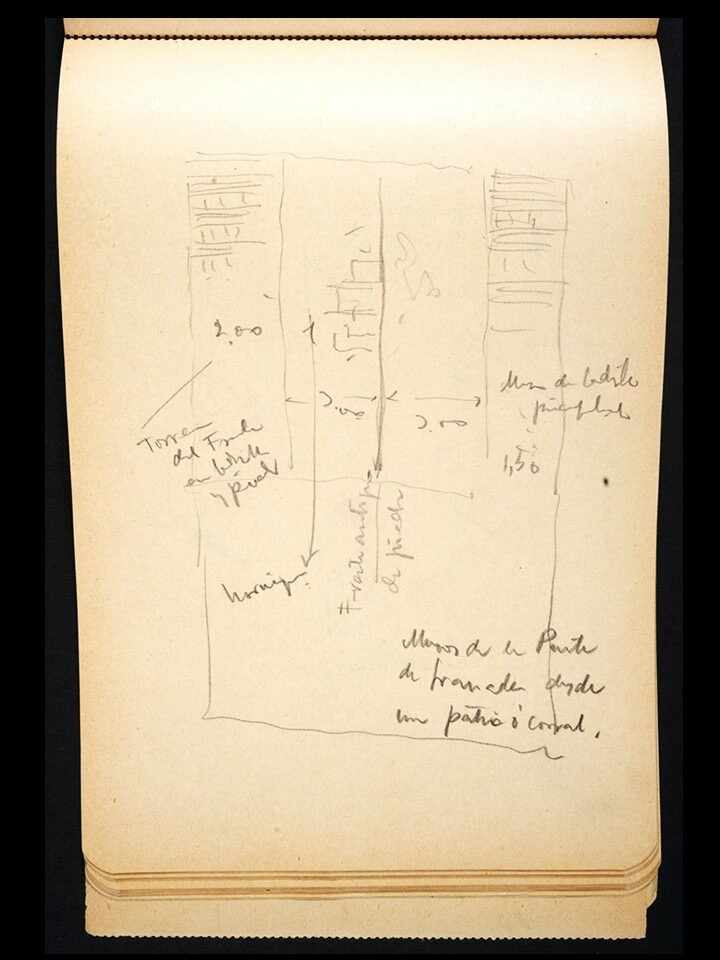 2,00
Torreon
del Frente
en ladrillo
y piedra
3,00
3.00
Muro de ladrillo
1,50
hormigon
Frente antiguo
de piedra
Muros de la Puerta
de Granada desde
un patio ó corral.